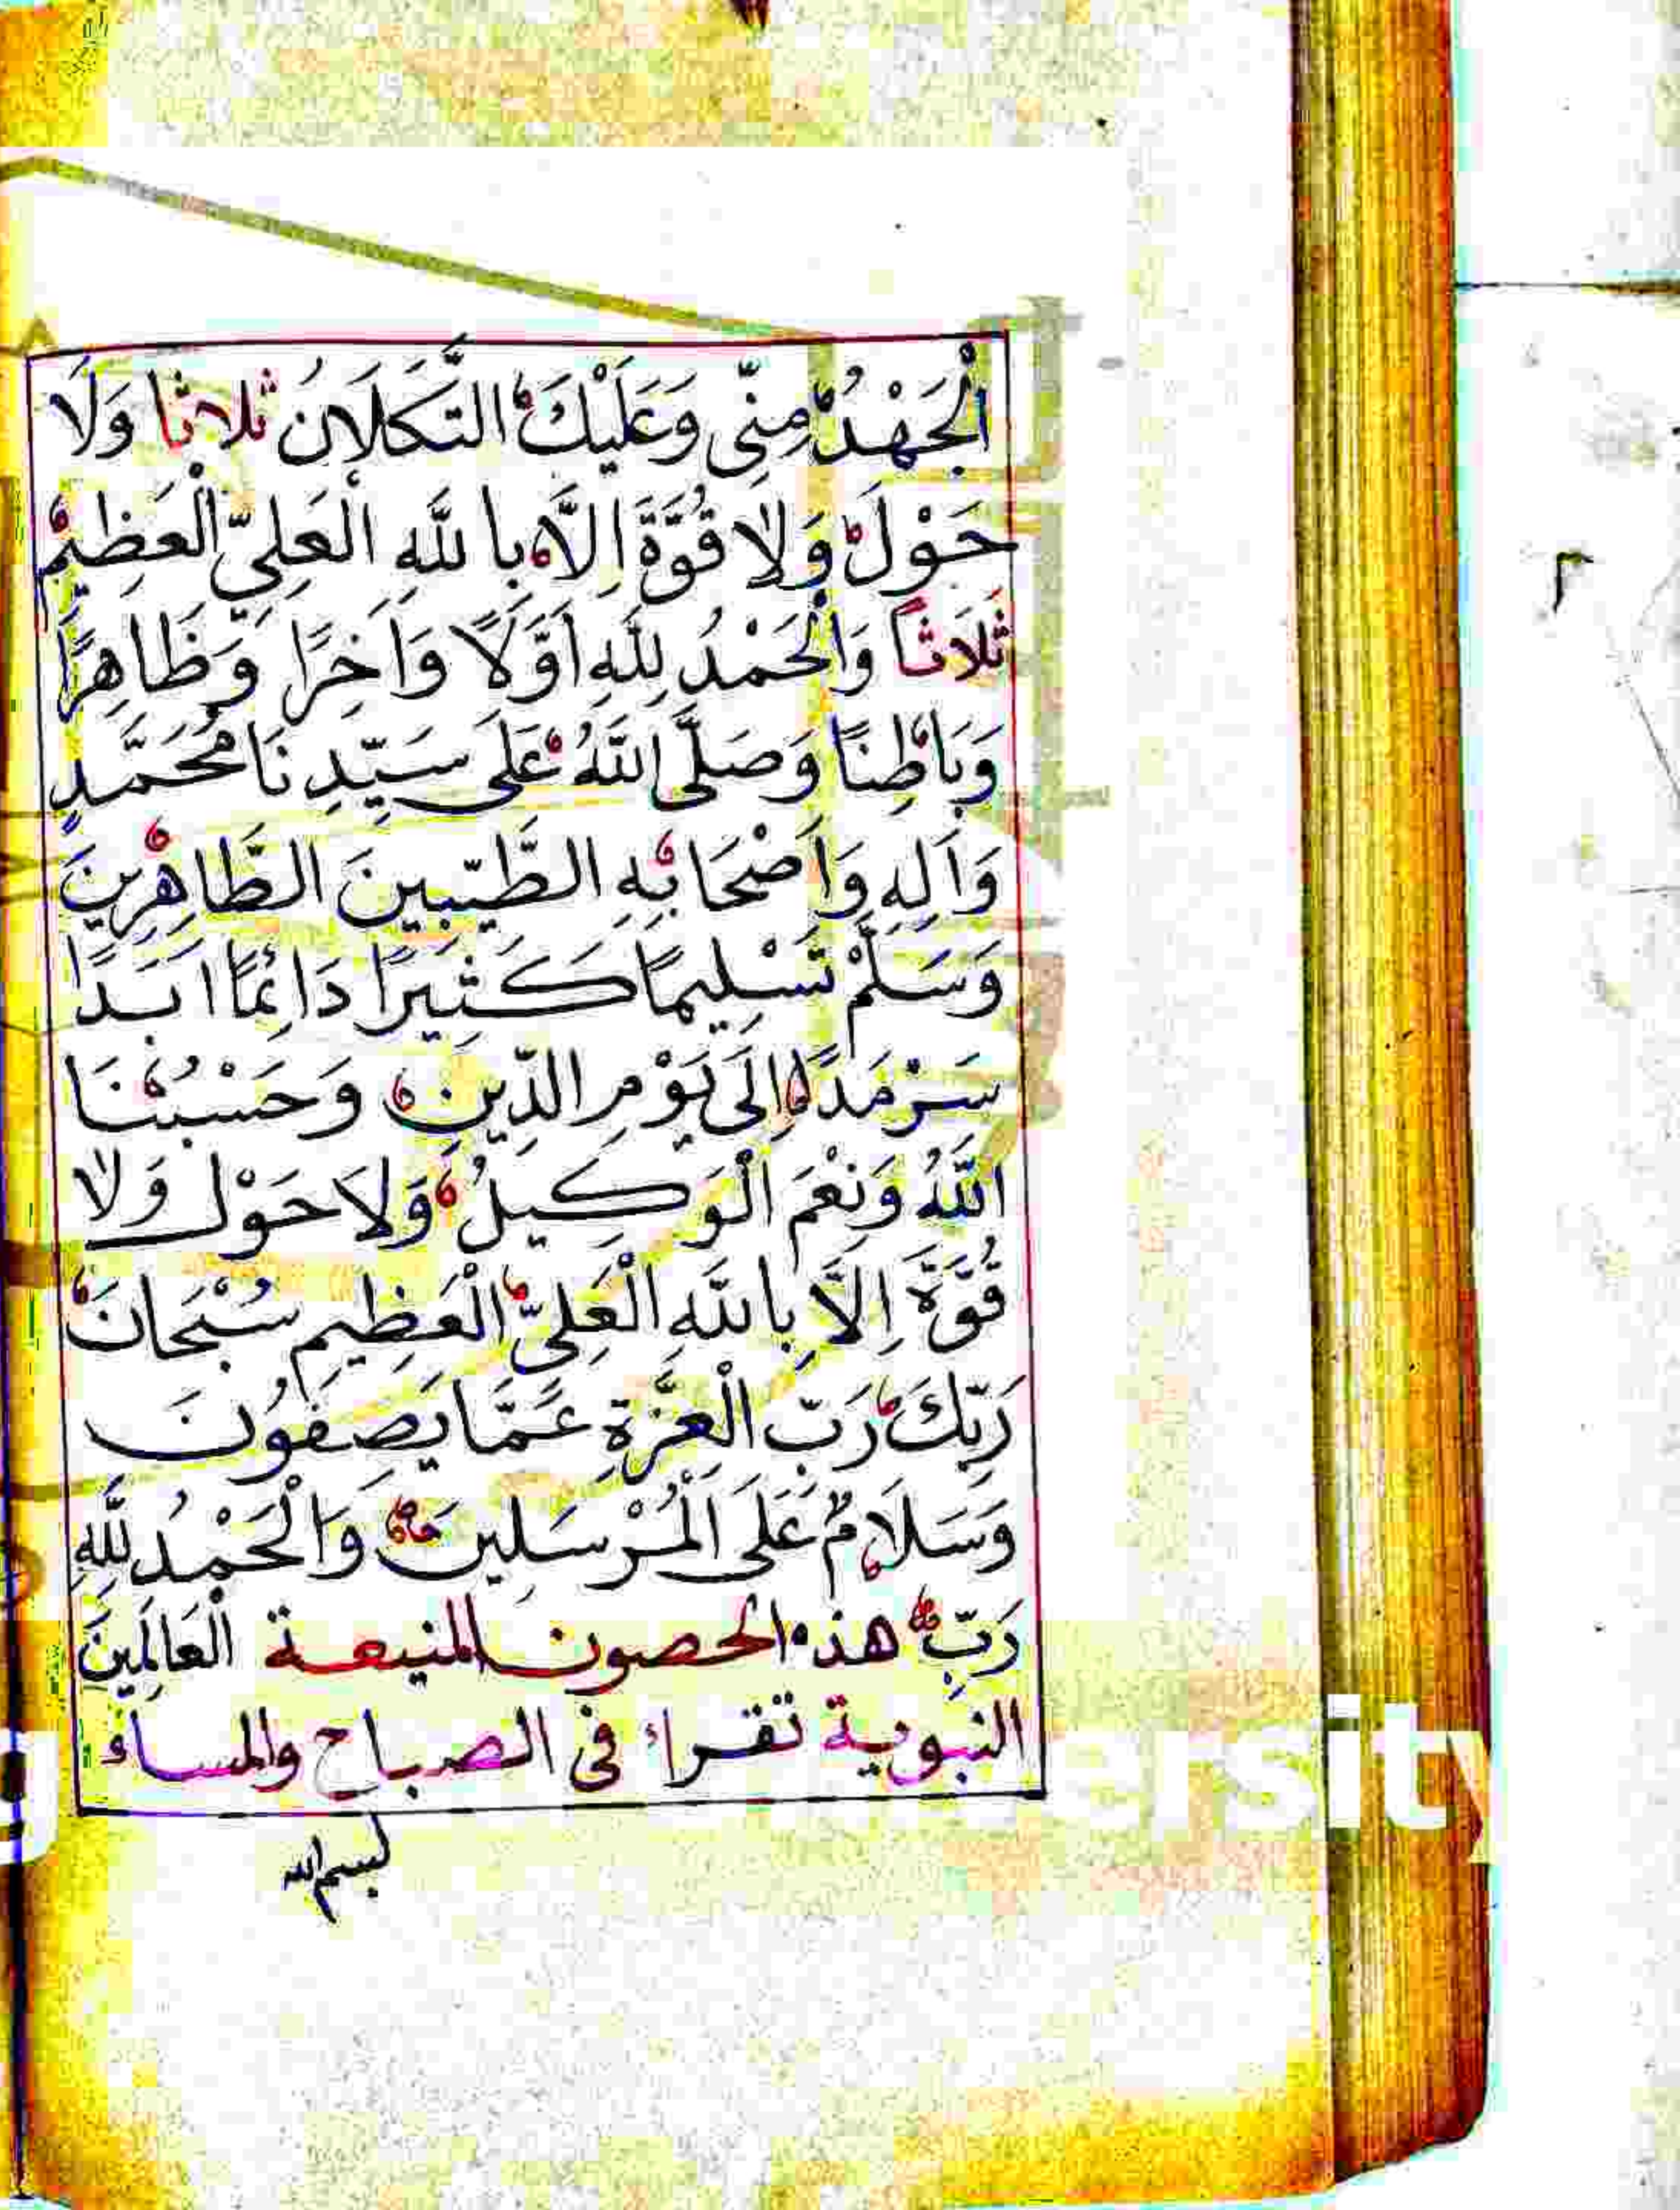 الْجَهْدُ مِنِّي وَعَلَيْكَ التَّكَلَانُ ثلاثا وَلَا
حَوْلَ وَلَا قُوَّةَ اِلَّا بِاللَّهِ الْعَلِيِّ الْعَظِيمِ
ثَلَاثاً وَالْحَمْدُ لِلَّهِ اَوَّلًا وَاَخِرًا وَّظَاهِرًا
وَبَاطِنًا وَصَلَّى اللَّهُ عَلَى سَيِّدِنَا مُحَمَّدٍ
وَاَلِهِ وَاَصْحَابِهِ الطَّيِّبِينَ الطَّاهِرِينَ
وَسَلَّمْ تَسْلِيمًا كَثِيرًا دَائِمًا اَبَدًا
سَرْمَدًا اِلَى يَوْمِ الدِّينِ وَحَسْبُنَا
اللَّهُ وَنِعْمَ الْوَكِيلُ وَلَا حَوْلَ وَلَا
قُوَّةَ اِلَّا بِاللَّهِ الْعَلِيِّ الْعَظِيمِ سُبْحَانَ
رَبِّكَ رَبِّ الْعِزَّةِ عَمَّا يَصِفُونَ
وَسَلَامٌ عَلَى الْمُرْسَلِينَ وَالْحَمْدُ لِلَّهِ
رَبِّ هذه الحصون المنيعة الْعَالَمِينَ
النبوية تقراء في الصباح والمساء
بسم الله
ersity
٣